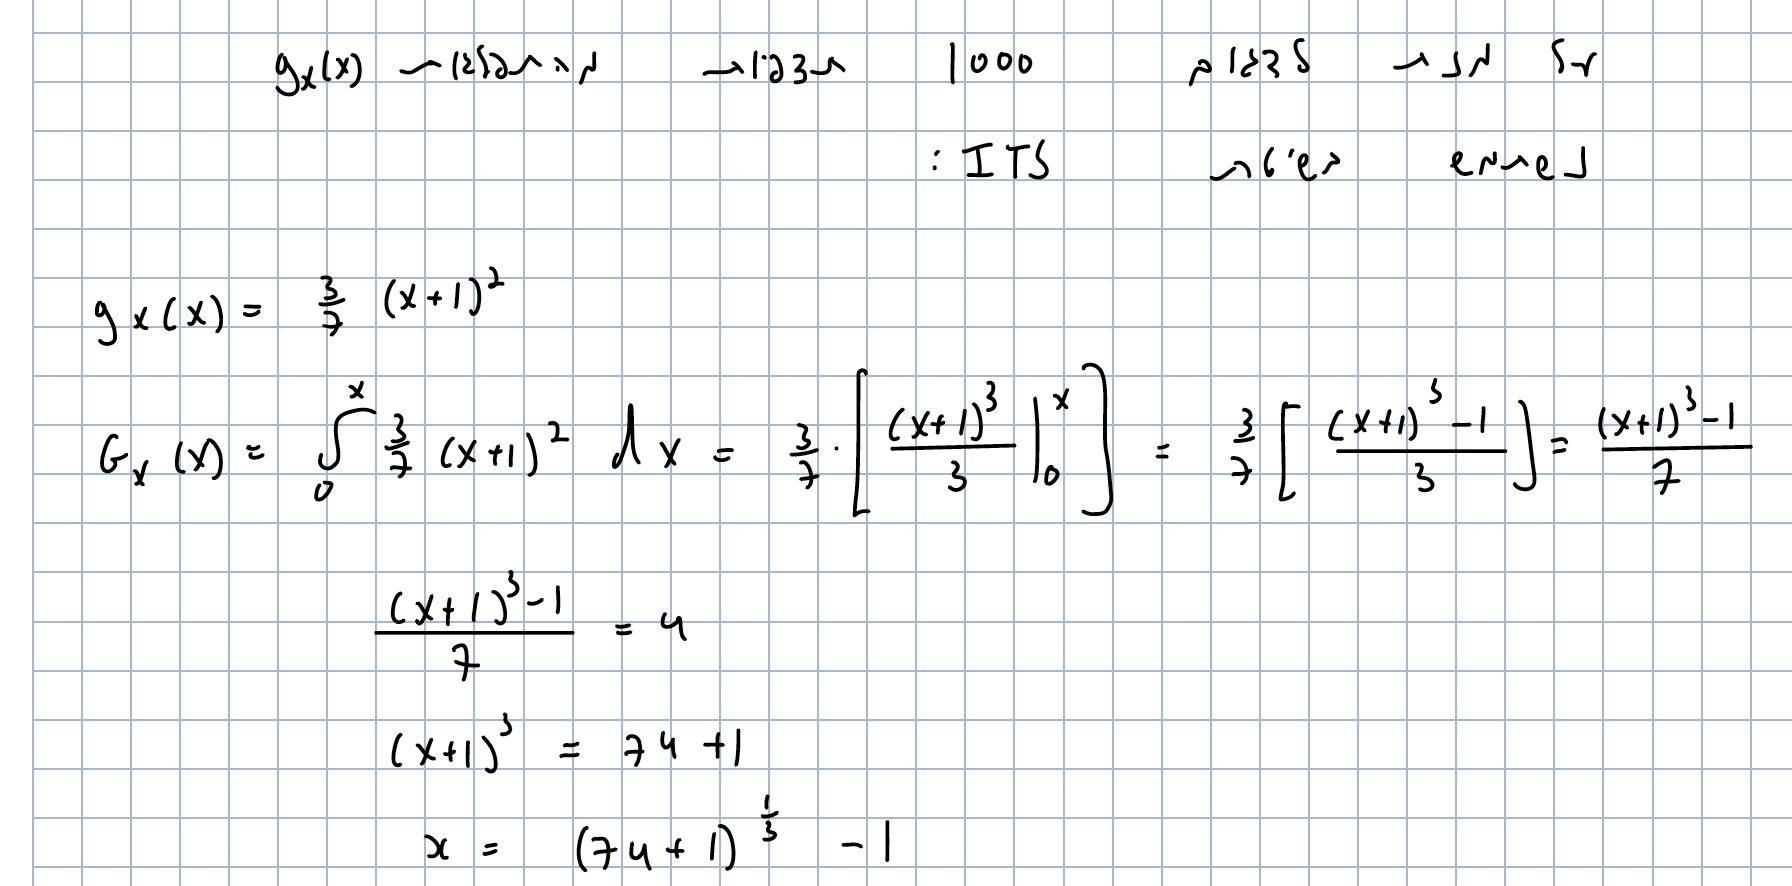 על מנת לדגום 1000 תצפיות מהתפלגות g_x(x)
נשתמש בשיטת ITS :
g_x(x) = 3/7 (x+1)^2
G_x(x) = ∫_0^x 3/7 (x+1)^2 dx = 3/7 · [ (x+1)^3/3 |_0^x ] = 3/7 [ ((x+1)^3 - 1)/3 ] = ((x+1)^3 - 1)/7
((x+1)^3 - 1)/7 = u
(x+1)^3 = 7u + 1
x = (7u + 1)^(1/3) - 1